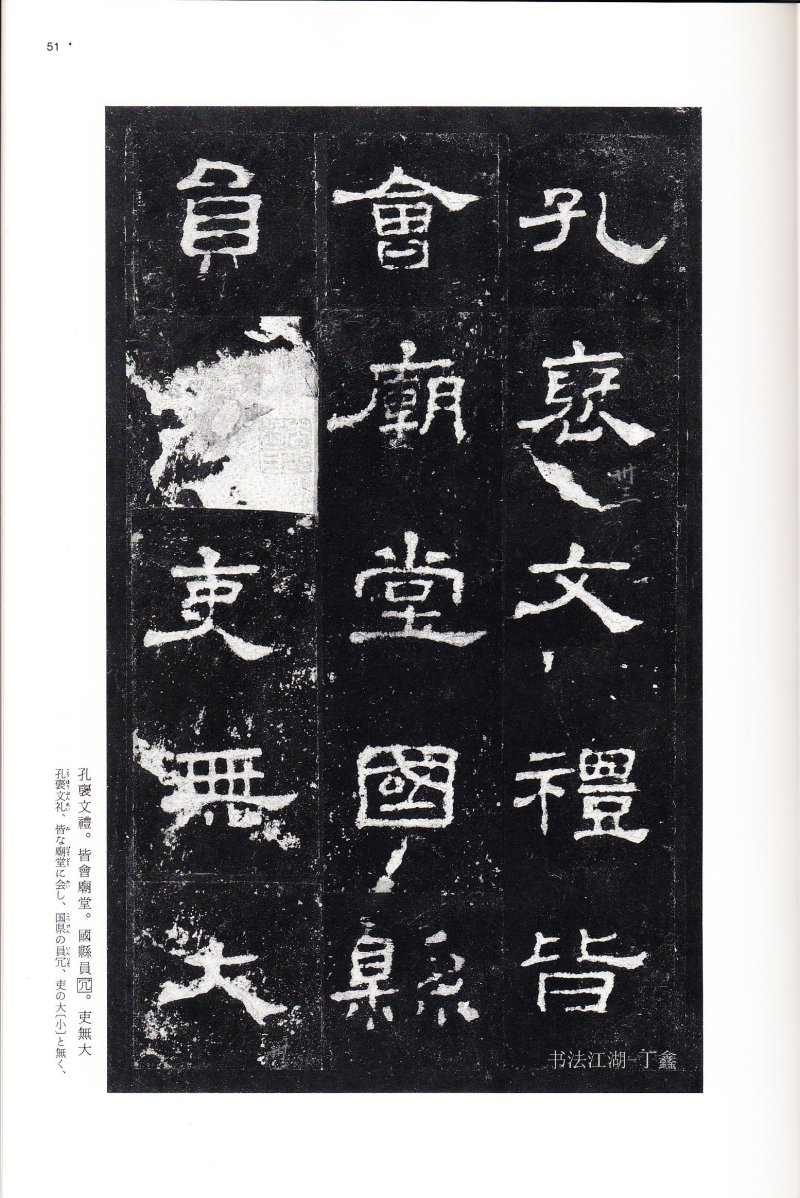 51
孔褒文禮皆
會廟堂國縣
員吏無大
卅三
书法江湖-丁鑫
孔褒文禮。皆會廟堂。國縣員冗。吏無大
孔褒文礼、皆な廟堂に会し、国県の員冗、吏の大〔小〕と無く、